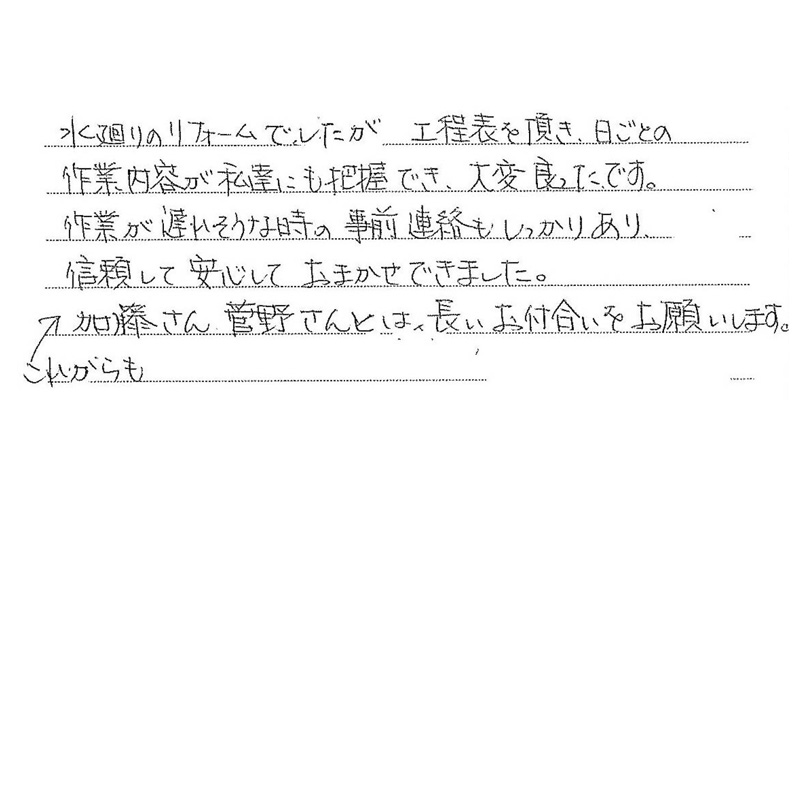 水廻りのリフォームでしたが 工程表を頂き、日ごとの
作業内容が私達にも把握でき、大変良ったです。
作業が遅れそうな時の事前連絡もしっかりあり、
信頼して安心しておまかせできました。
加藤さん 菅野さんとは、長いお付合いをお願いします。
これからも